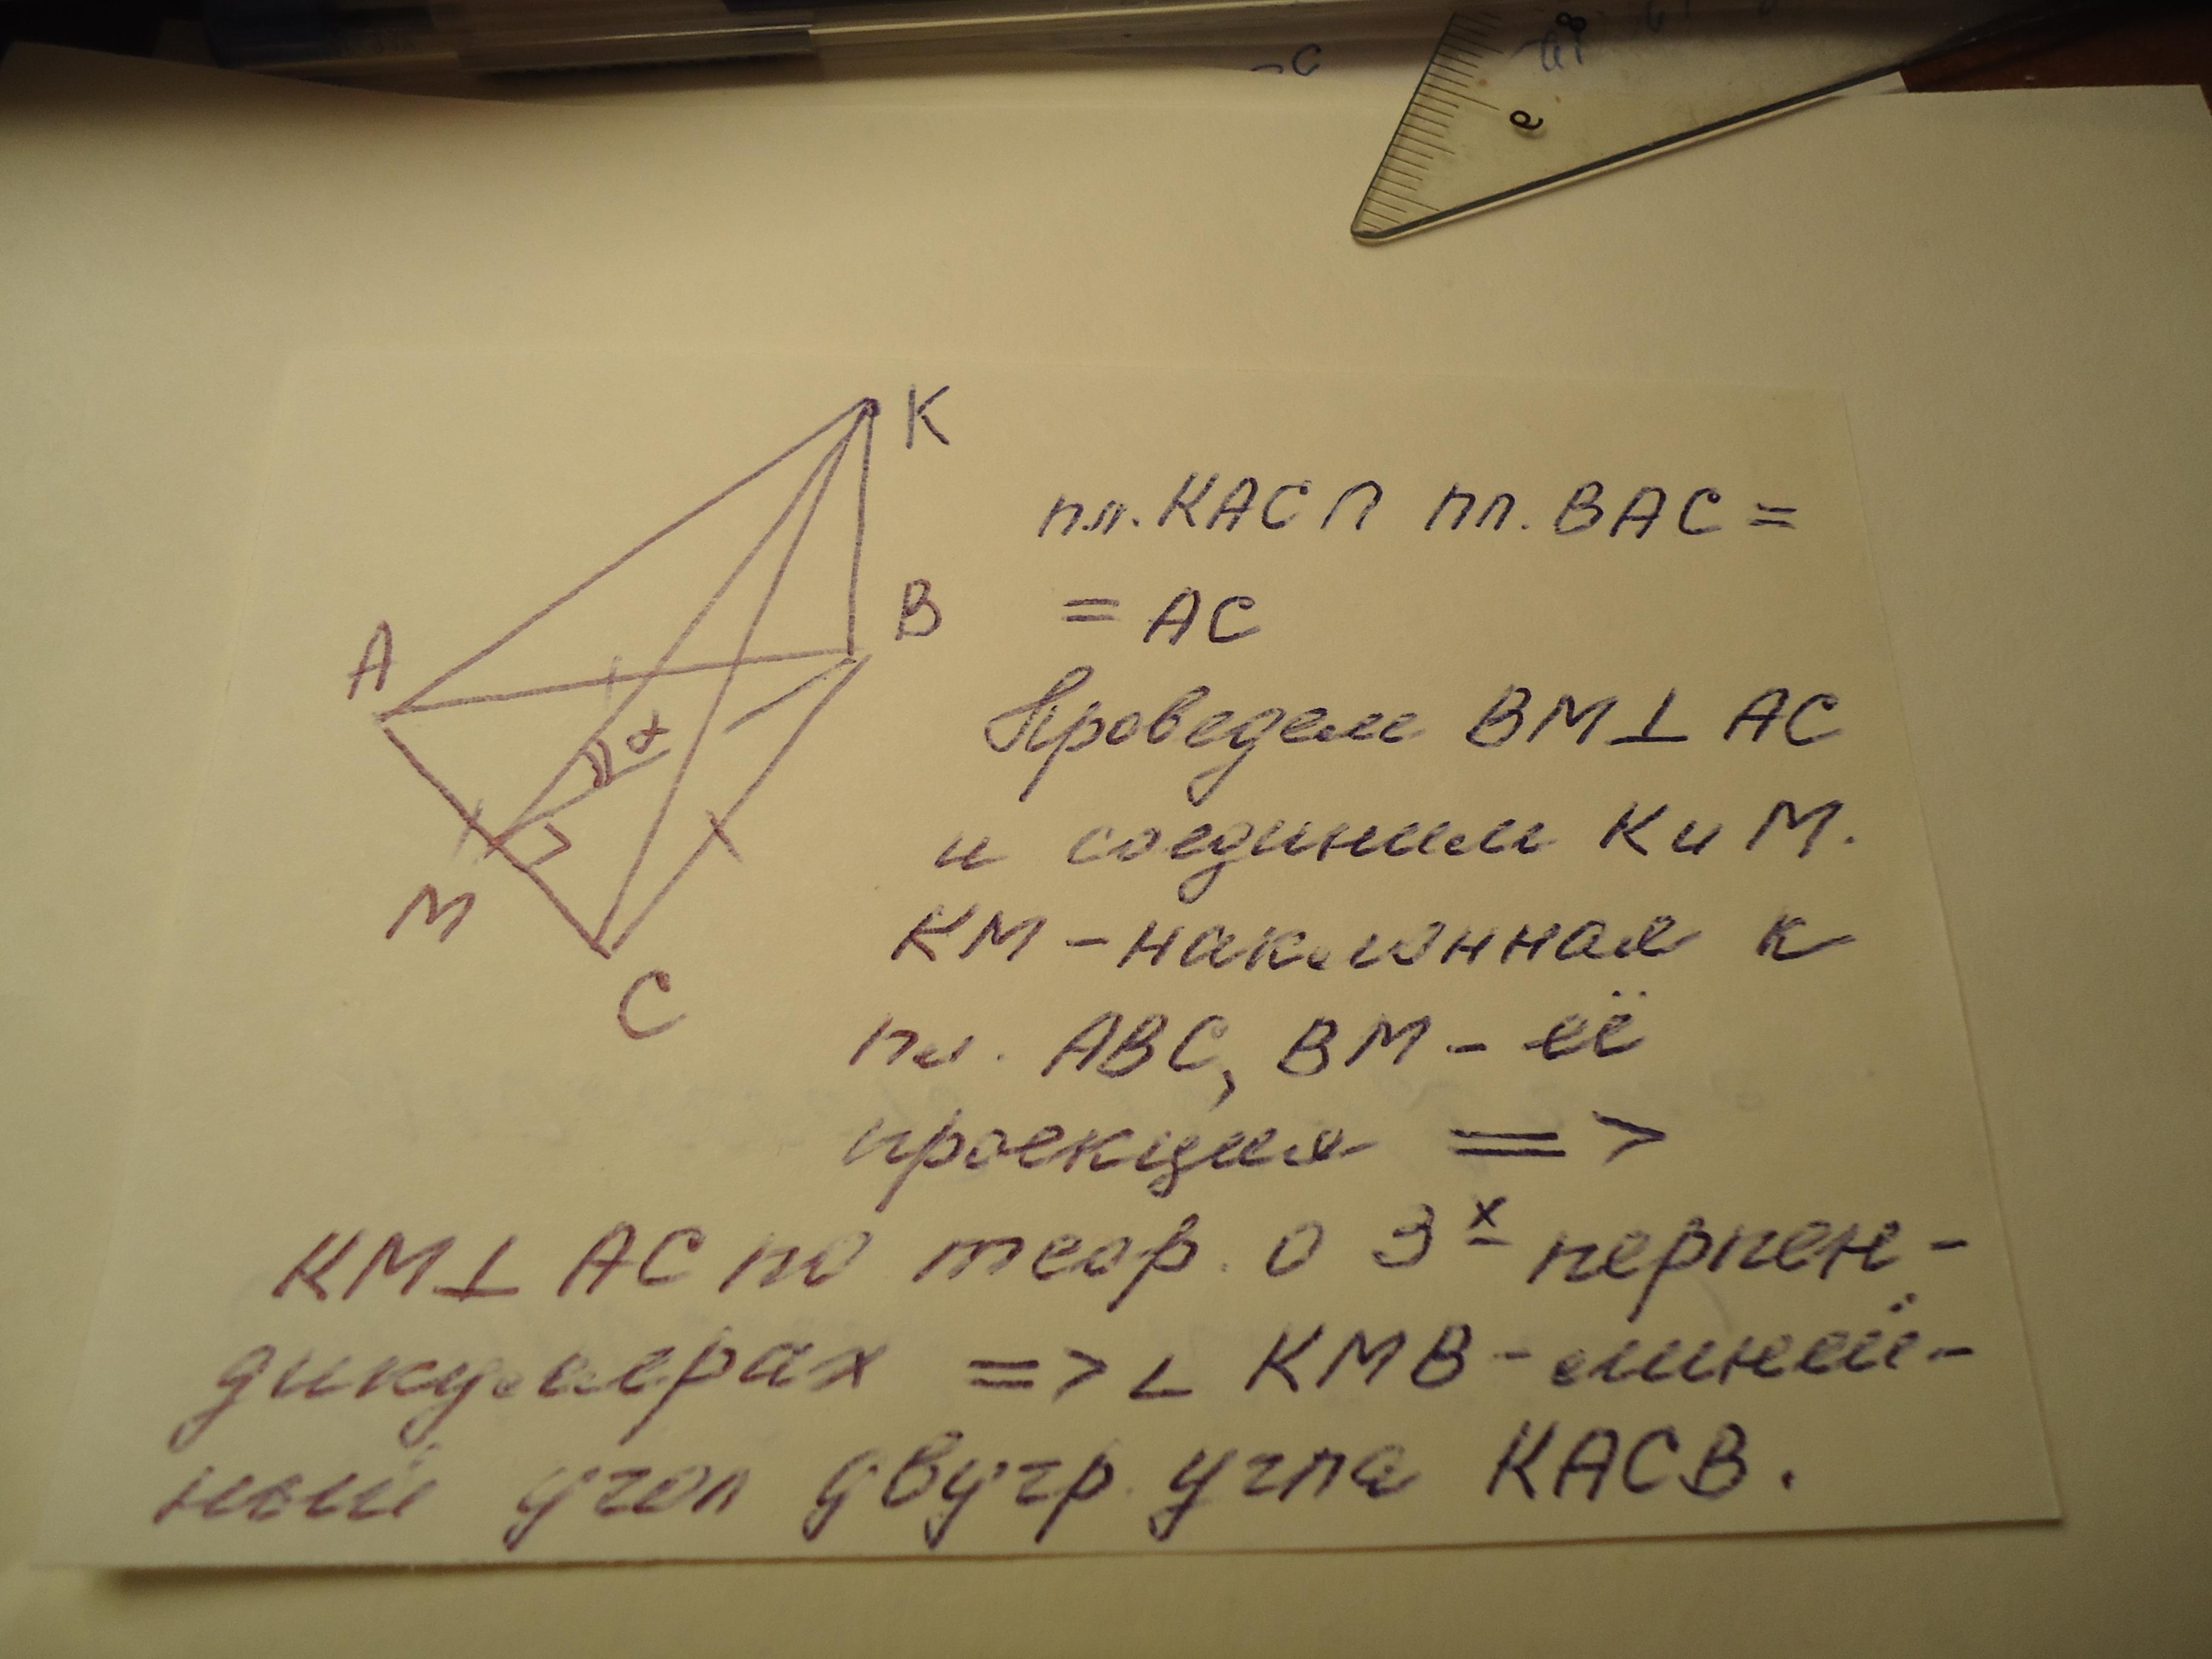 K
пл. KAC ∩ пл. BAC =
B
= AC
A
α
Проведем BM⊥ AC
и соединим K и M.
M
KM - наклонная к
C
пл. ABC, BM - её
проекция =>
KM⊥ AC по теор. о 3х перпен-
дикулярах => ∠ KMB - линей-
ный угол двугр. угла KACB.
9
8